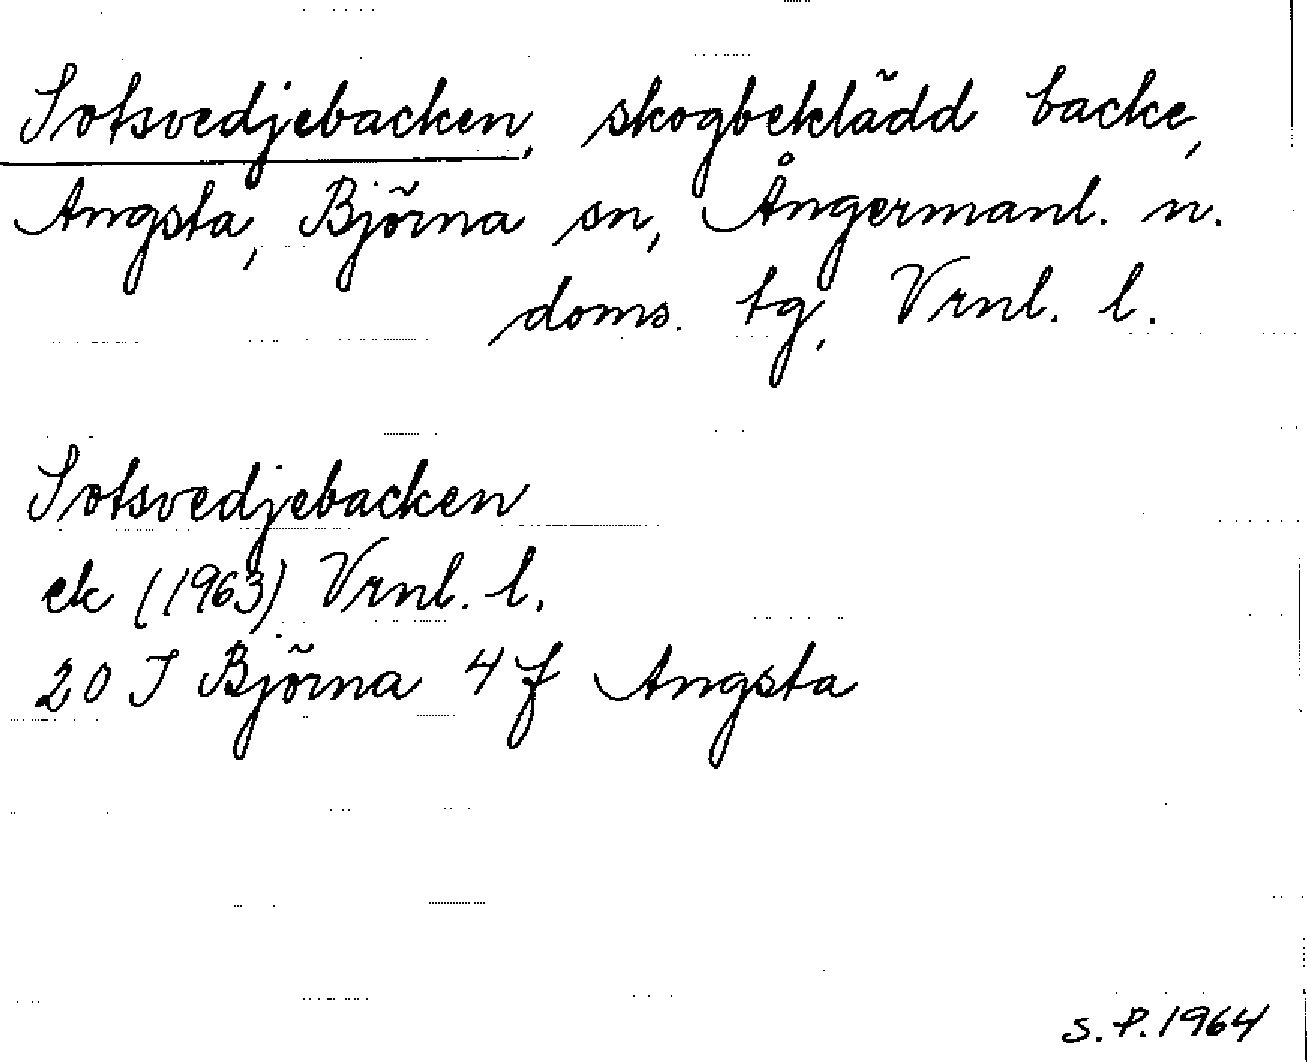 Sotsvedjebacken, skogbeklädd backe,
Angsta, Björna sn, Ångermanl. n.
doms. tg, Vrnl. l.
Sotsvedjebacken
ek (1963) Vrnl. l.
20 J Björna 4 f Angsta
S.P. 1964